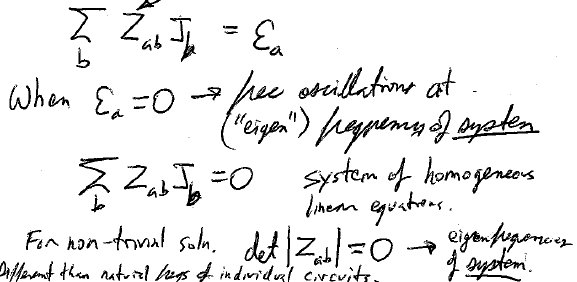 ∑_b Z_ab J_b = ℰ_a
When ℰ_a = 0 → free oscillations at
("eigen") frequency of system
∑_b Z_ab J_b = 0 system of homogeneous
linear equations.
For non-trivial soln. det |Z_ab| = 0 → eigenfrequencies
of system.
Different than natural freqs of individual circuits.